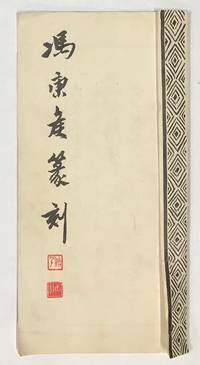 馮康矦篆刻